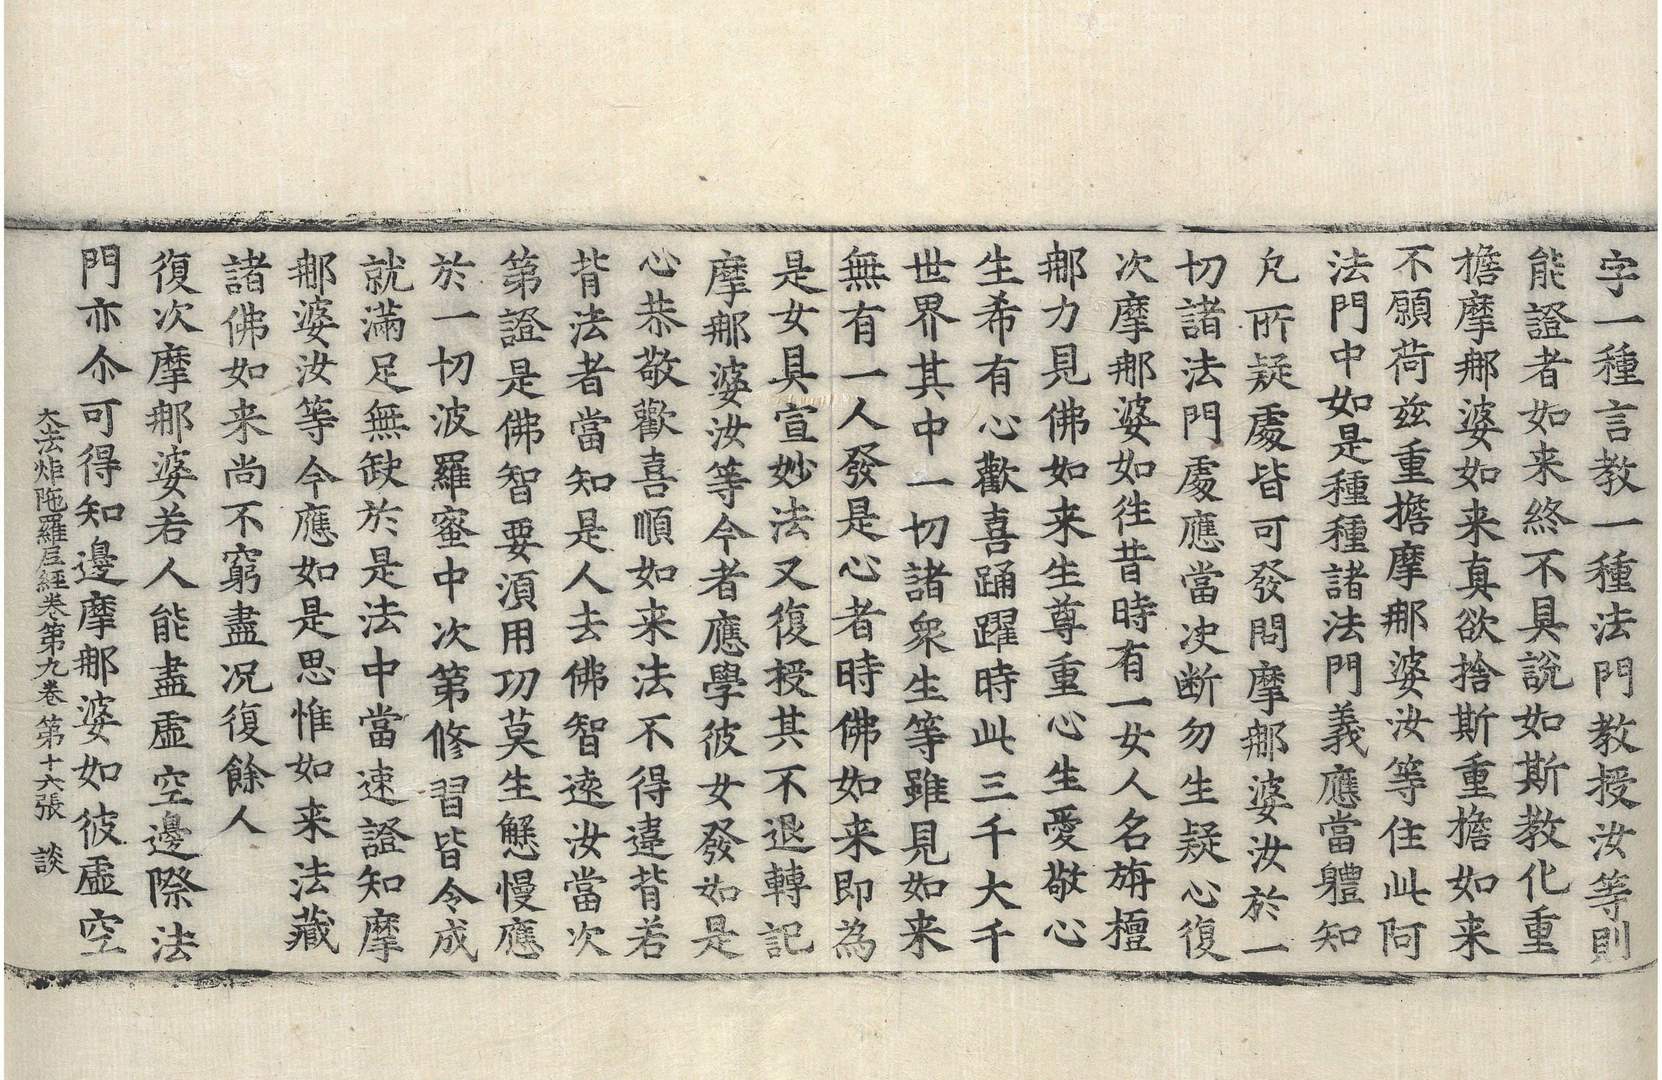 字一種言教一種法門教授汝等則
能證者如来終不具說如斯教化重
擔摩那婆如来真欲捨斯重擔如来
不願荷玆重擔摩那婆汝等住此阿
法門中如是種種諸法門義應當體知
凡所疑處皆可發問摩那婆汝於一
切諸法門處應當决断勿生疑心復
次摩那婆如徃昔時有一女人名旃檀
那力見佛如来生尊重心生愛敬心
生希有心歡喜踊躍時此三千大千
世界其中一切諸衆生等雖見如来
無有一人發是心者時佛如来即為
是女具宣妙法又復授其不退轉記
摩那婆汝等今者應學彼女發如是
心恭敬歡喜順如来法不得違背若
背法者當知是人去佛智遠汝當次
第證是佛智要須用功莫生懈慢應
於一切波羅蜜中次第修習皆令成
就滿足無缺於是法中當速證知摩
那婆汝等今應如是思惟如来法藏
諸佛如来尚不窮盡况復餘人
復次摩那婆若人能盡虛空邊際法
門亦尒可得知邊摩那婆如彼虛空
大法炬陁羅尼經卷第九卷 第十六張 談